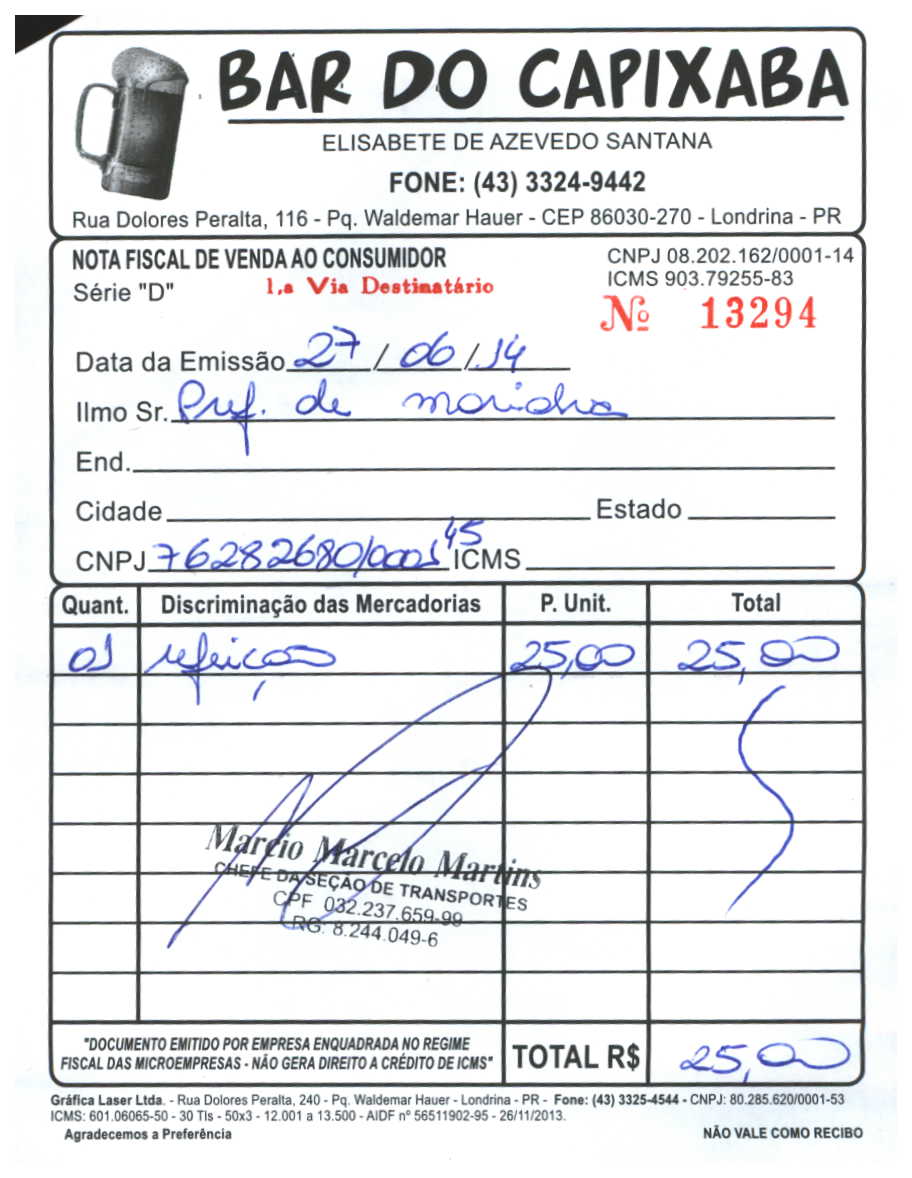 BAR DO CAPIXABA
ELISABETE DE AZEVEDO SANTANA
FONE: (43) 3324-9442
Rua Dolores Peralta, 116 - Pq. Waldemar Hauer - CEP 86030-270 - Londrina - PR
NOTA FISCAL DE VENDA AO CONSUMIDOR
CNPJ 08.202.162/0001-14
Série "D"
1.a Via Destinatário
ICMS 903.79255-83
Nº 13294
Data da Emissão 27/06/14
Ilmo Sr. Pref. de
End.
Cidade Estado
CNPJ 76282680/0001 45 ICMS
Quant. Discriminação das Mercadorias P. Unit. Total
01 refeição 25,00 25,00
Marcio Marcelo Martins
CHEFE DA SEÇÃO DE TRANSPORTES
CPF 032.237.659-99
RG: 8.244.049-6
"DOCUMENTO EMITIDO POR EMPRESA ENQUADRADA NO REGIME
FISCAL DAS MICROEMPRESAS - NÃO GERA DIREITO A CRÉDITO DE ICMS"
TOTAL R$ 25,00
Gráfica Laser Ltda. - Rua Dolores Peralta, 240 - Pq. Waldemar Hauer - Londrina - PR - Fone: (43) 3325-4544 - CNPJ: 80.285.620/0001-53
ICMS: 601.06065-50 - 30 Tls - 50x3 - 12.001 a 13.500 - AIDF nº 56511902-95 - 26/11/2013.
Agradecemos a Preferência
NÃO VALE COMO RECIBO